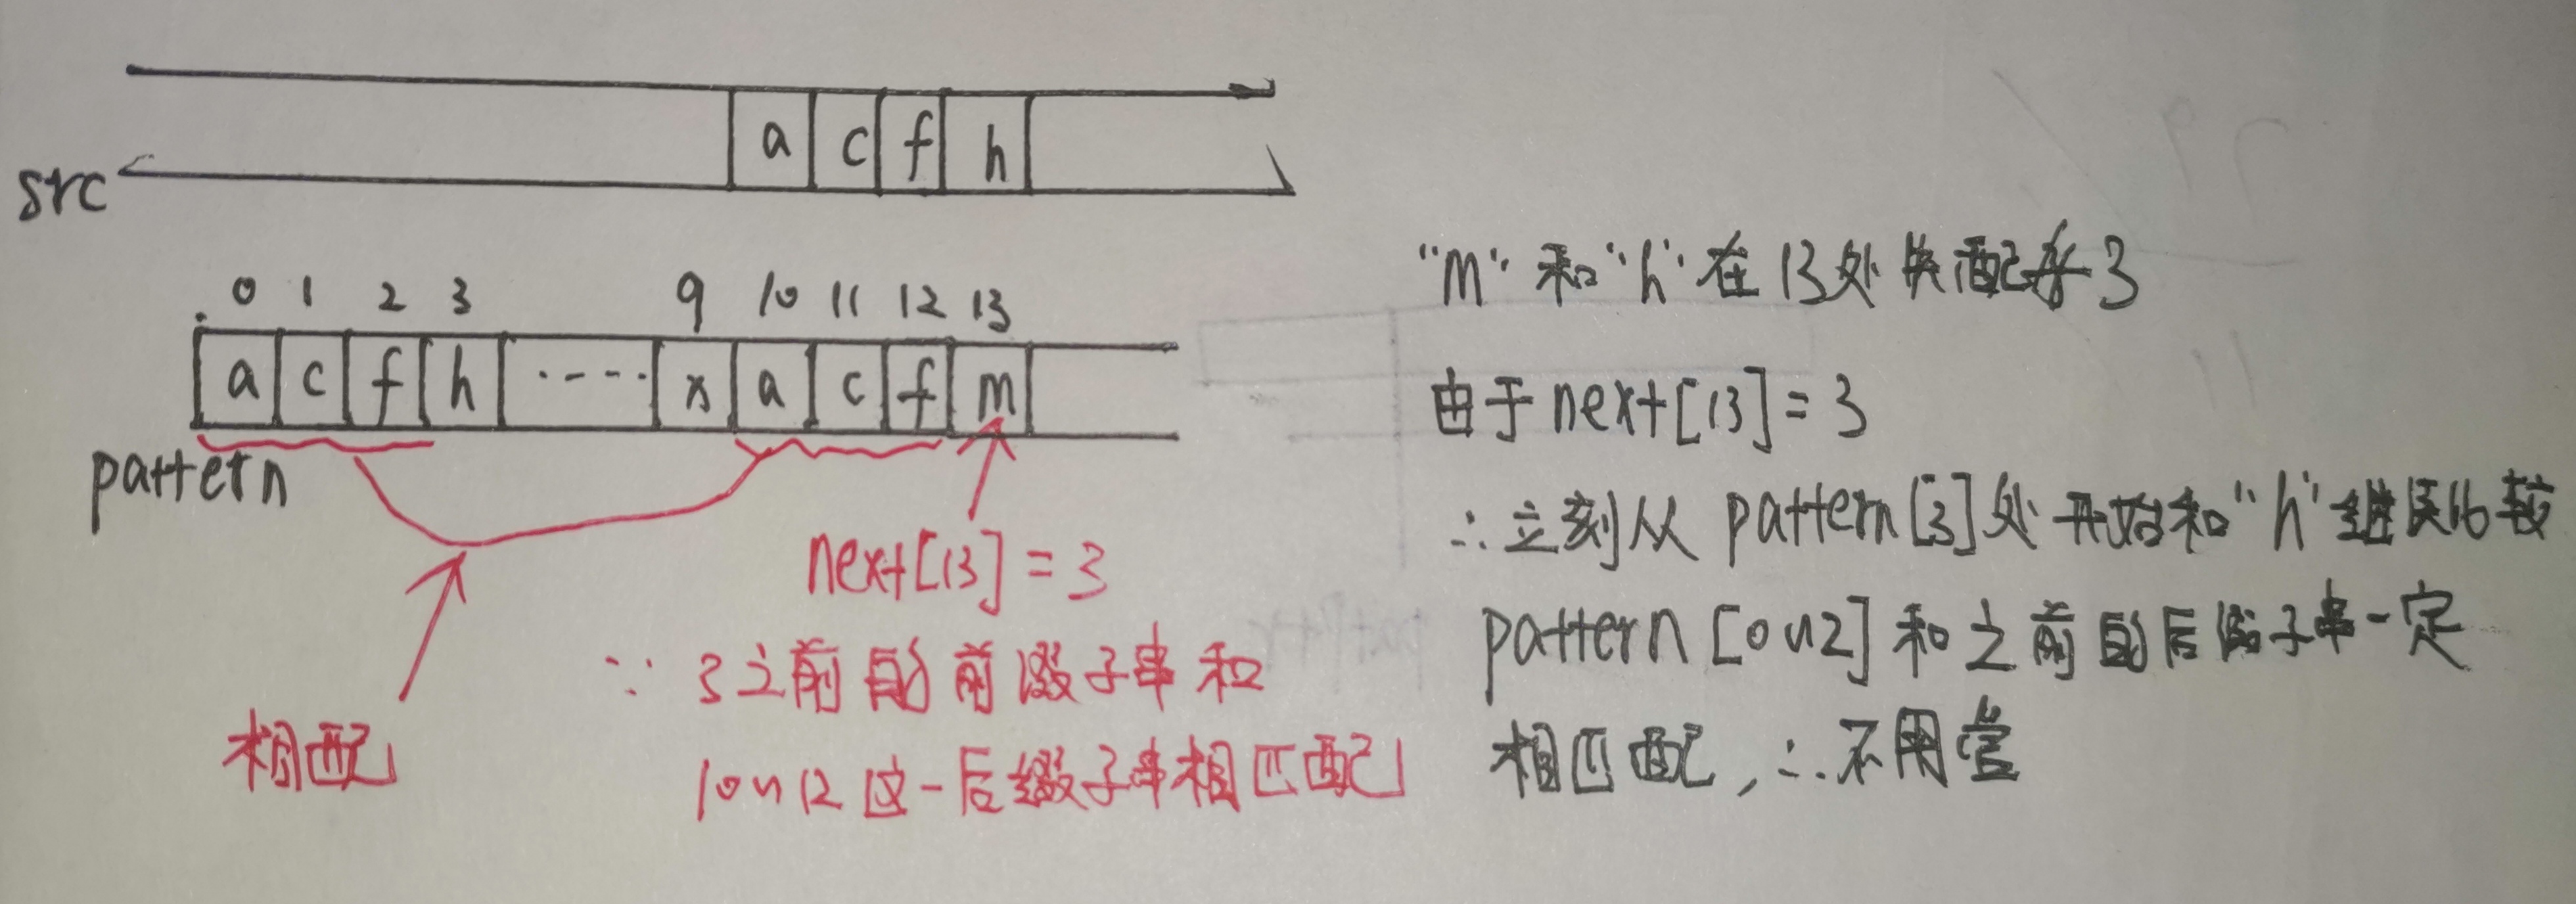 a c f h
src
0 1 2 3 9 10 11 12 13
a c f h ..... x a c f m
pattern
next[13] = 3
∵ 3之前的前缀子串和
10~12这一后缀子串相匹配
相配
"m"和"h"在13处失配了
由于next[13]=3
∴立刻从pattern[3]处开始和"h"继续比较
pattern[0~2]和之前的后缀子串一定
相匹配,∴不用管